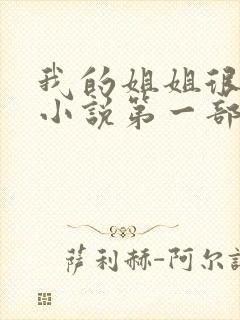 我的姐姐很
小说第一部
萨利赫-阿尔